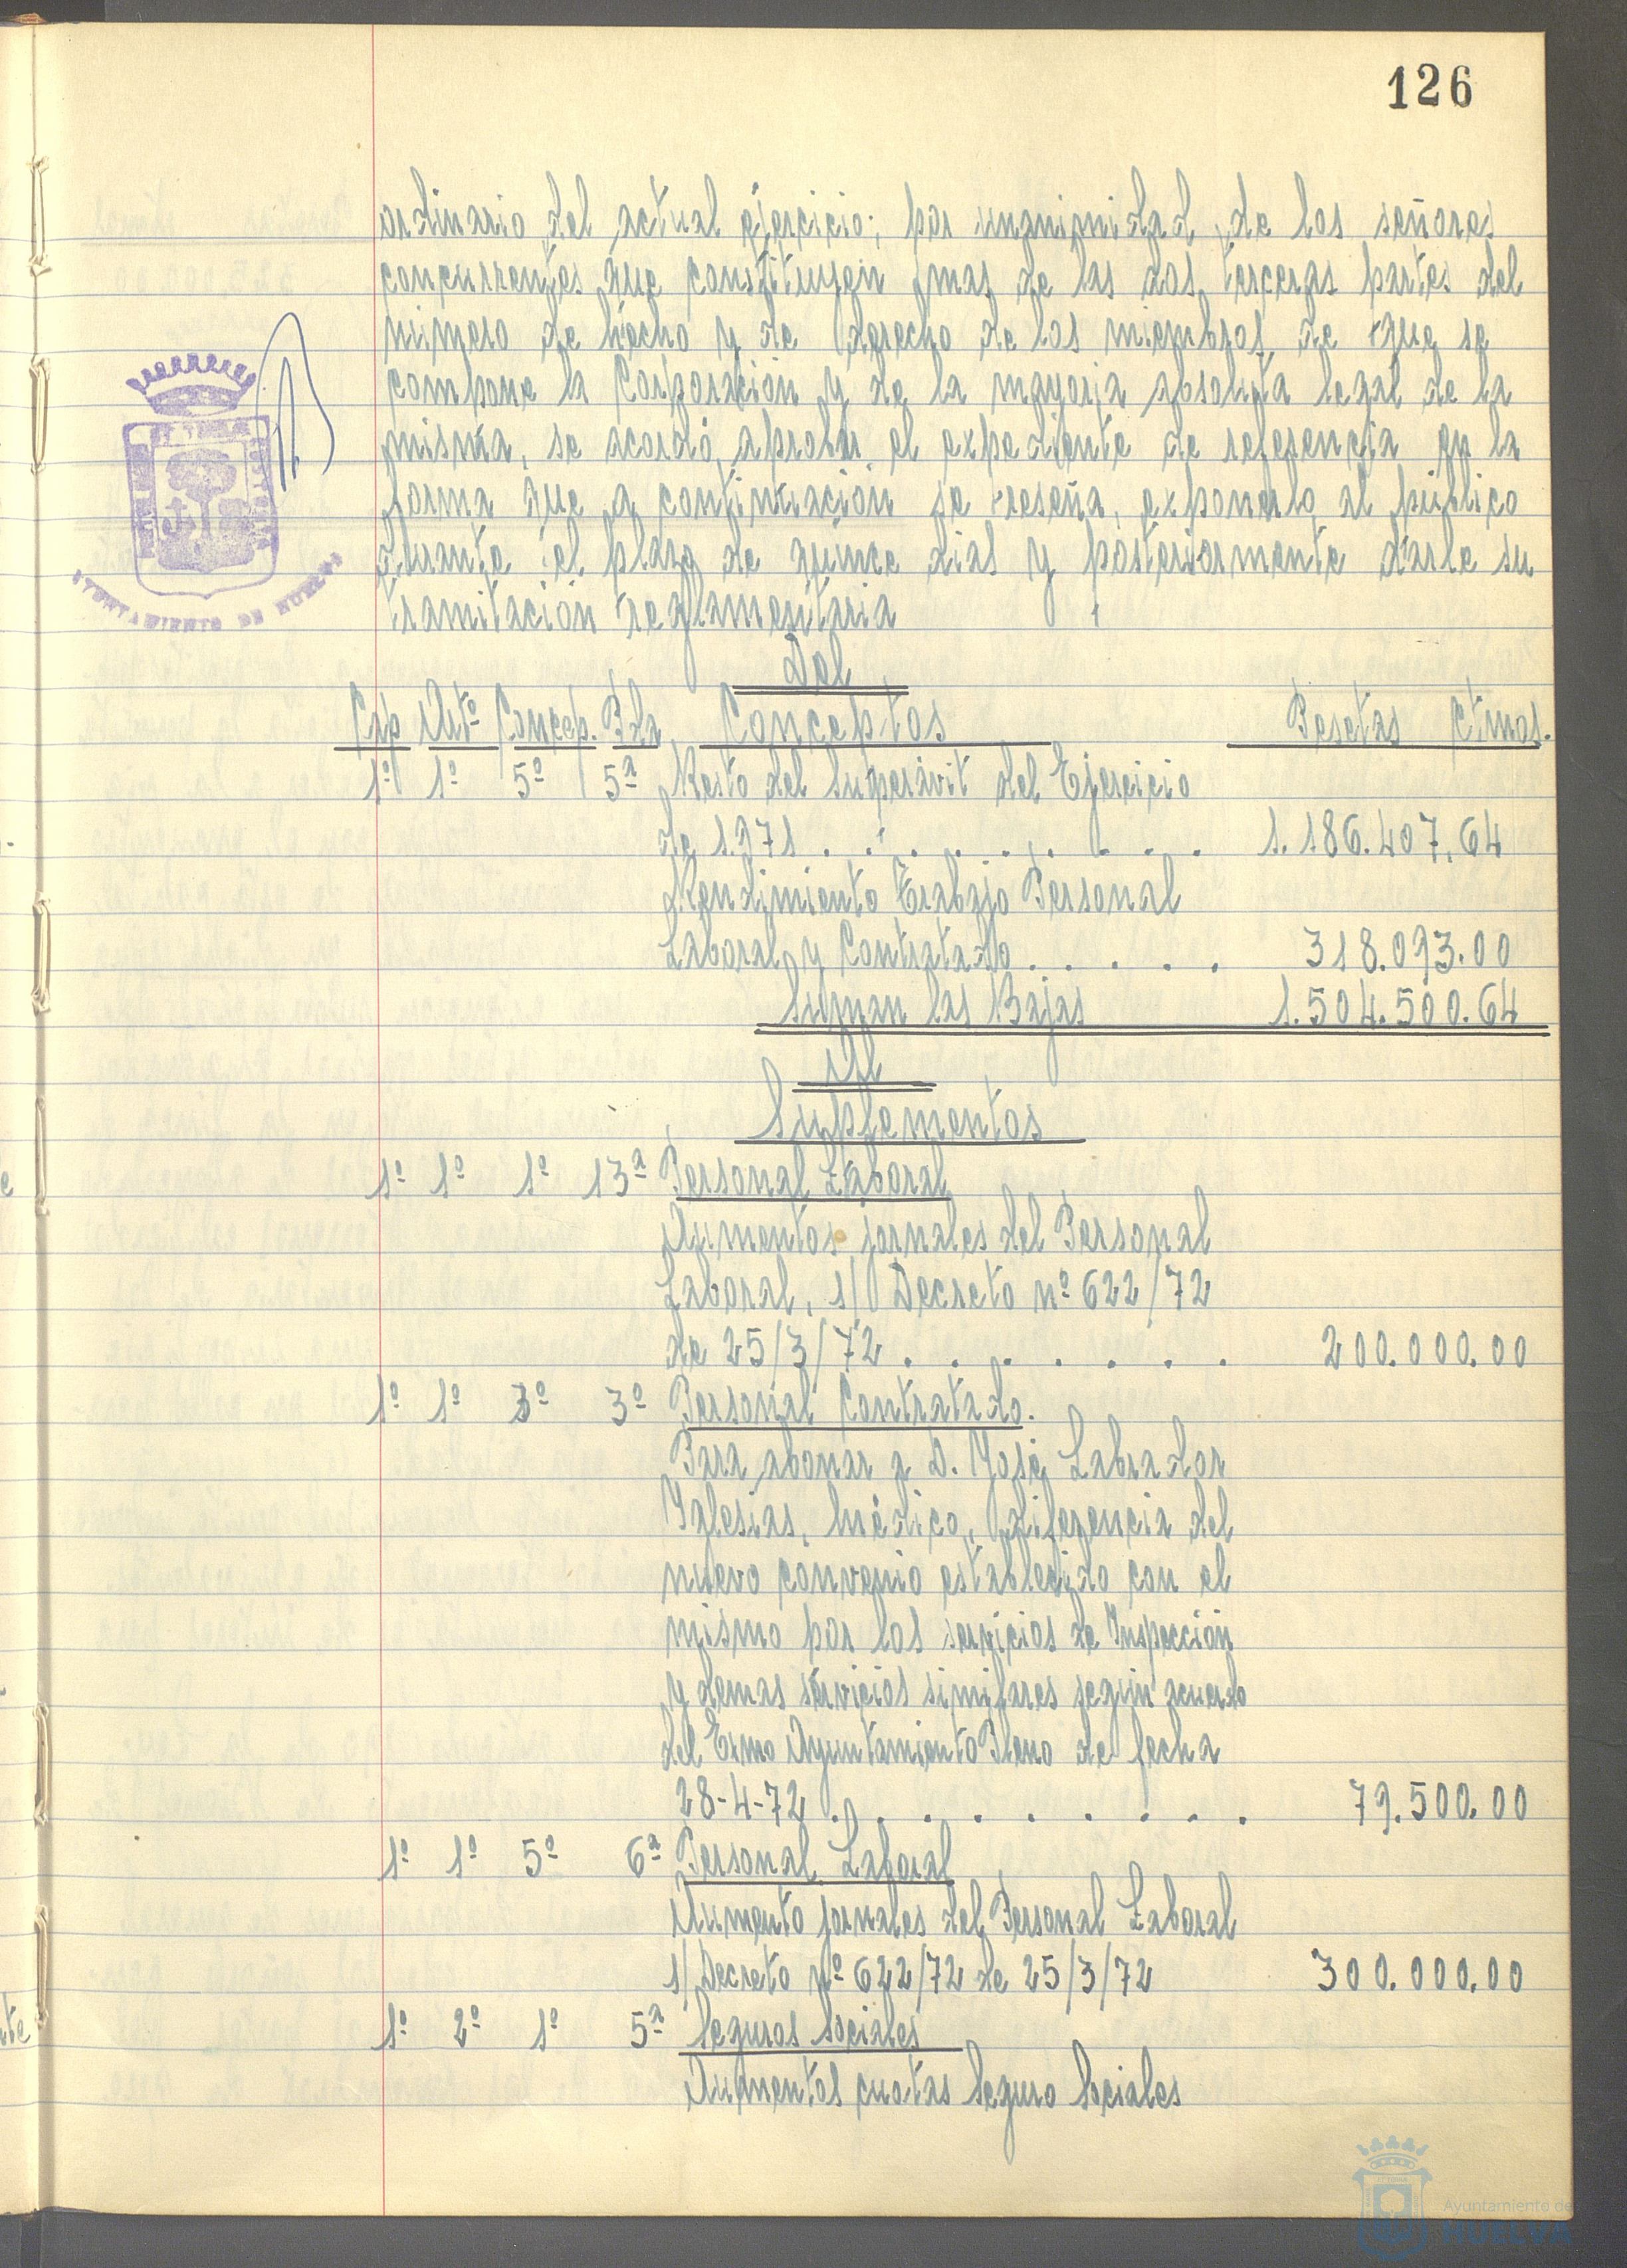 126
ordinario del actual ejercicio; por unanimidad de los señores
concurrentes que constituyen mas de las dos terceras partes del
número de hecho y de derecho de los miembros de que se
compone la Corporación y de la mayoría absoluta legal de la
misma, se acordó aprobar el expediente de referencia en la
forma que a continuación se reseña, exponerlo al público
durante el plazo de quince dias y posteriormente darle su
tramitación reglamentaria
AYUNTAMIENTO DE HUELVA
Del
Cap Artº Concep. Pda Conceptos Pesetas Ctmos.
1º 1º 5º 5ª Resto del Superávit del Ejercicio
de 1.971 . . . . . . . . . 1.186.407,64
Rendimiento Trabajo Personal
Laboral y Contratado . . . . . 318.093.00
Suman las Bajas 1.504.500.64
Al
Suplementos
1º 1º 1º 13ª Personal Laboral
Aumentos jornales del Personal
Laboral, s/ Decreto nº 622/72
de 25/3/72 . . . . . . . 200.000.00
1º 1º 3º 3º Personal Contratado.
Para abonar a D. José Labrador
Yglesias, Médico, diferencia del
nuevo convenio establecido con el
mismo por los servicios de Inspección
y demas servicios similares según acuerdo
del Exmo Ayuntamiento Pleno de fecha
28-4-72 . . . . . . . . . 79.500.00
1º 1º 5º 6ª Personal Laboral
Aumento jornales del Personal Laboral
s/ Decreto nº 622/72 de 25/3/72 300.000.00
1º 2º 1º 5ª Seguros Sociales
Aumentos cuotas Seguro Sociales
Ayuntamiento de
HUELVA